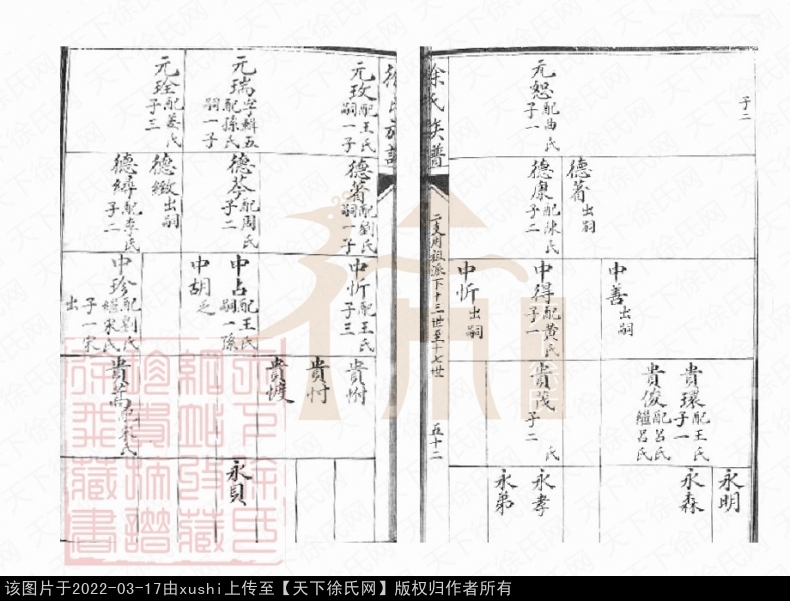 子二
元恕 配曲氏 子一
德莙 出嗣
德康 配陳氏 子二
中善 出嗣
中得 配黄氏 子一
中忻 出嗣
貴環 配王氏 子一
貴俊 配呂氏 繼呂氏
貴茂 氏 子二
永明
永森
永孝
永弟
徐氏族譜
二支用祖派下十三世至十七世
五十二
元玫 配王氏 嗣一子
元瑞 字輯五 配孫氏 嗣一子
元琻 配姜氏 子三
德莙 配劉氏 嗣一子
德苓 配周氏 子二
德緻 出嗣
德縟 配李氏 子二
中忻 配王氏 子三
中占 配王氏 嗣一孫
中胡 乏
中珍 配劉氏 繼宋氏 子一宋出
貴怤
貴忖
貴㦄
貴萬 配宋氏
永貝
该图片于2022-03-17由xushi上传至【天下徐氏网】版权归作者所有